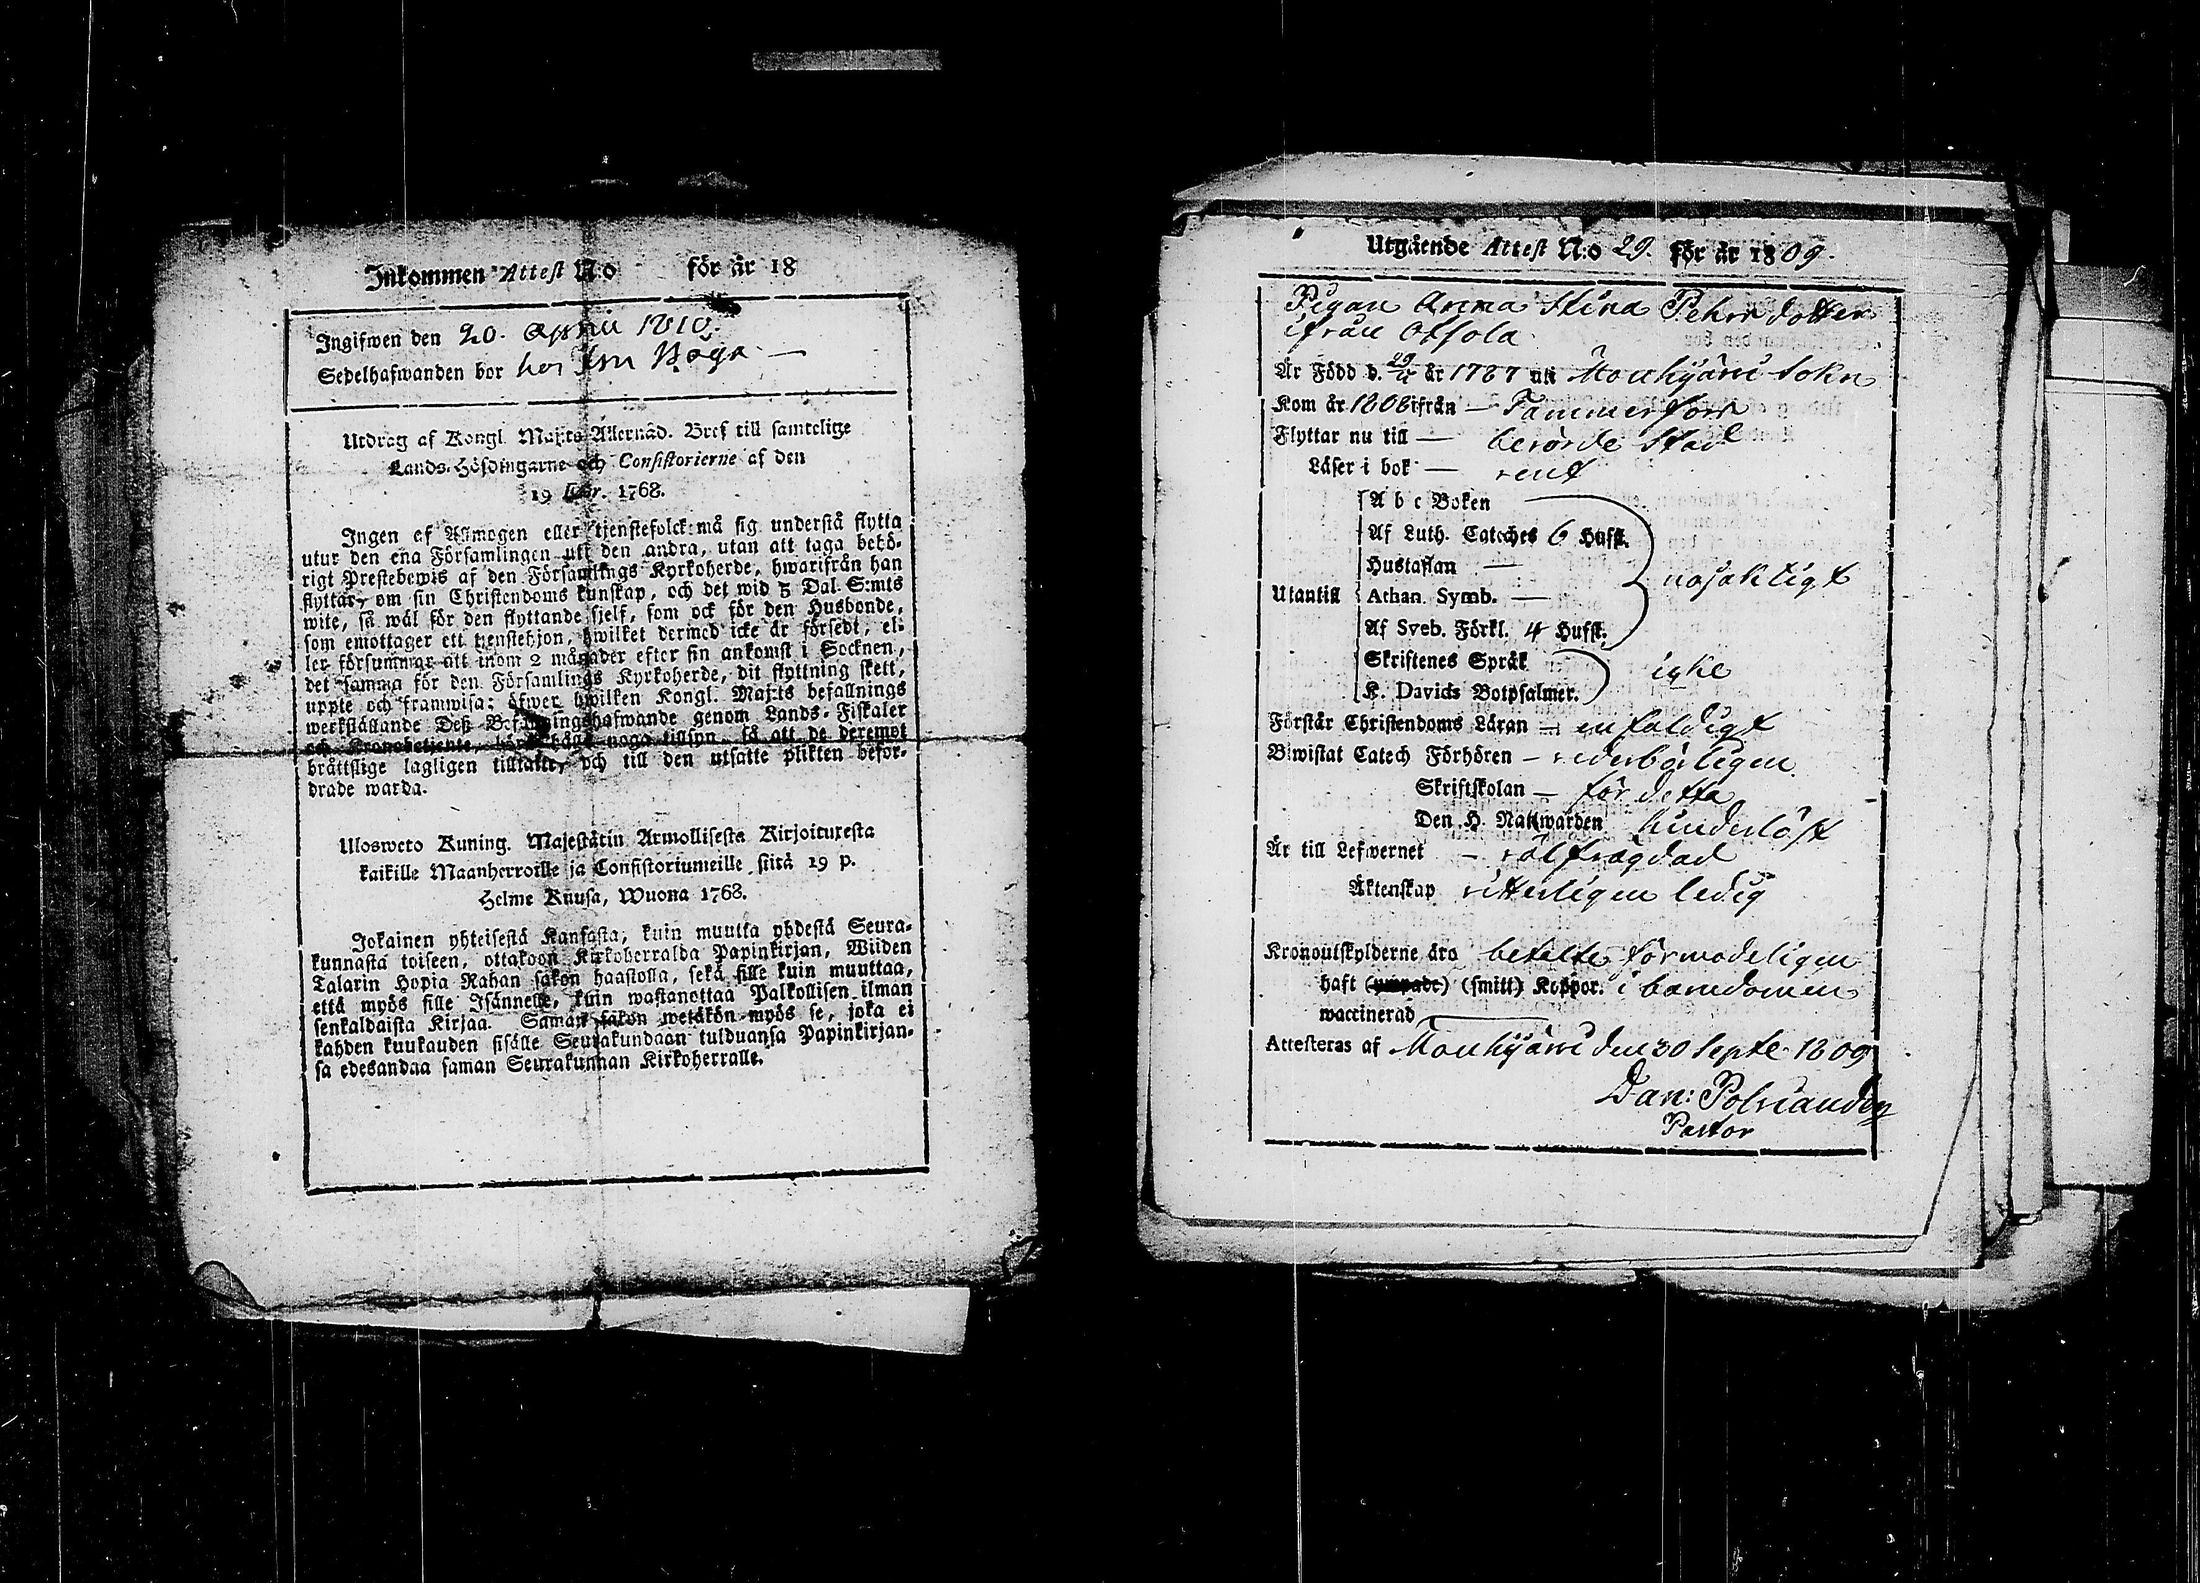 Inkommen Attest N:o för år 18
Ingifwen den 20. April 1810.
Sedelhafwanden bor hos
Utdrag af Kongl. Maj:ts Allernåd. Bref till samtelige
Lands-Höfdingarne och Consistorierne af den
19 Febr. 1768.
Ingen af Allmogen eller tjenstefolck må sig understå flytta
utur den ena Församlingen uti den andra, utan att taga behö-
rigt Prestebewis af den Församlings Kyrkoherde, hwarifrån han
flyttar, om sin Christendoms kunskap, och det wid 5 Dal. S:mts
wite, så wäl för den flyttande sjelf, som ock för den Husbonde,
som emottager ett tjenstehjon, hwilket dermed icke är försedt, el-
ler försummar att inom 2 månader efter sin ankomst i Socknen,
det samma för den Församlings Kyrkoherde, dit flyttning skett,
uppte och framwisa; öfwer hwilken Kongl. Maj:ts befallnings
werkställande Deß Befallningshafwande genom Lands-Fiskaler
och Kronobetjente, böra hafwa noga tillsyn, så att de deremot
bråttslige lagligen tilltalte, och till den utsatte plikten beför-
drade warda.
Ulosweto Kuning. Majestätin Armollisesta Kirjoituxesta
kaikille Maanherroille ja Consistoriumeille siitä 19 p.
Helme Kuusa, Wuona 1768.
Jokainen yhteisestä Kansasta, kuin muutta yhdestä Seura-
kunnasta toiseen, ottakoon Kirkoherralda Papinkirjan, Wiiden
Talarin Hopia Rahan sakon haastolla, sekä sille kuin muuttaa,
että myös sille Isännelle, kuin wastanottaa Palkollisen ilman
senkaldaista Kirjaa. Saman sakon wetäkön myös se, joka ei
kahden kuukauden sisälle Seurakundaan tulduansa Papinkirjan-
sa edesandaa saman Seurakunnan Kirkoherralle.
Utgående Attest N:o 29. för år 1809.
Pigan Anna Stina Pehrsdotter
ifrån Ossola
Är Född d. 29 år 1787 uti Mouhijärvi Sokn
Kom år 1808 ifrån — Tammerfors
Flyttar nu till — berörde Stad
Läser i bok — rent
Utantill
A b c Boken
Af Luth. Cateches 6 Hufst.
Hustaflan —
Athan. Symb. —
Af Sveb. Förkl. 4 Hufst.
nöjaktigt
Skriftenes Språk
K. Davids Botpsalmer.
icke
Förstår Christendoms Läran — enfaldigt
Biwistat Catech Förhören — vederbörligen
Skriftskolan — för detta
Den H. Nattwarden hinderlöst
Är till Lefwernet — välfrägdad
Äktenskap vitterligen ledig
Kronoutskylderne äro betalte förmodeligen
haft (ympade) (smitt) Koppor. i barndomen
waccinerad —
Attesteras af Mouhijärvi den 30 Septe 1809
Dan: Polviander
Pastor